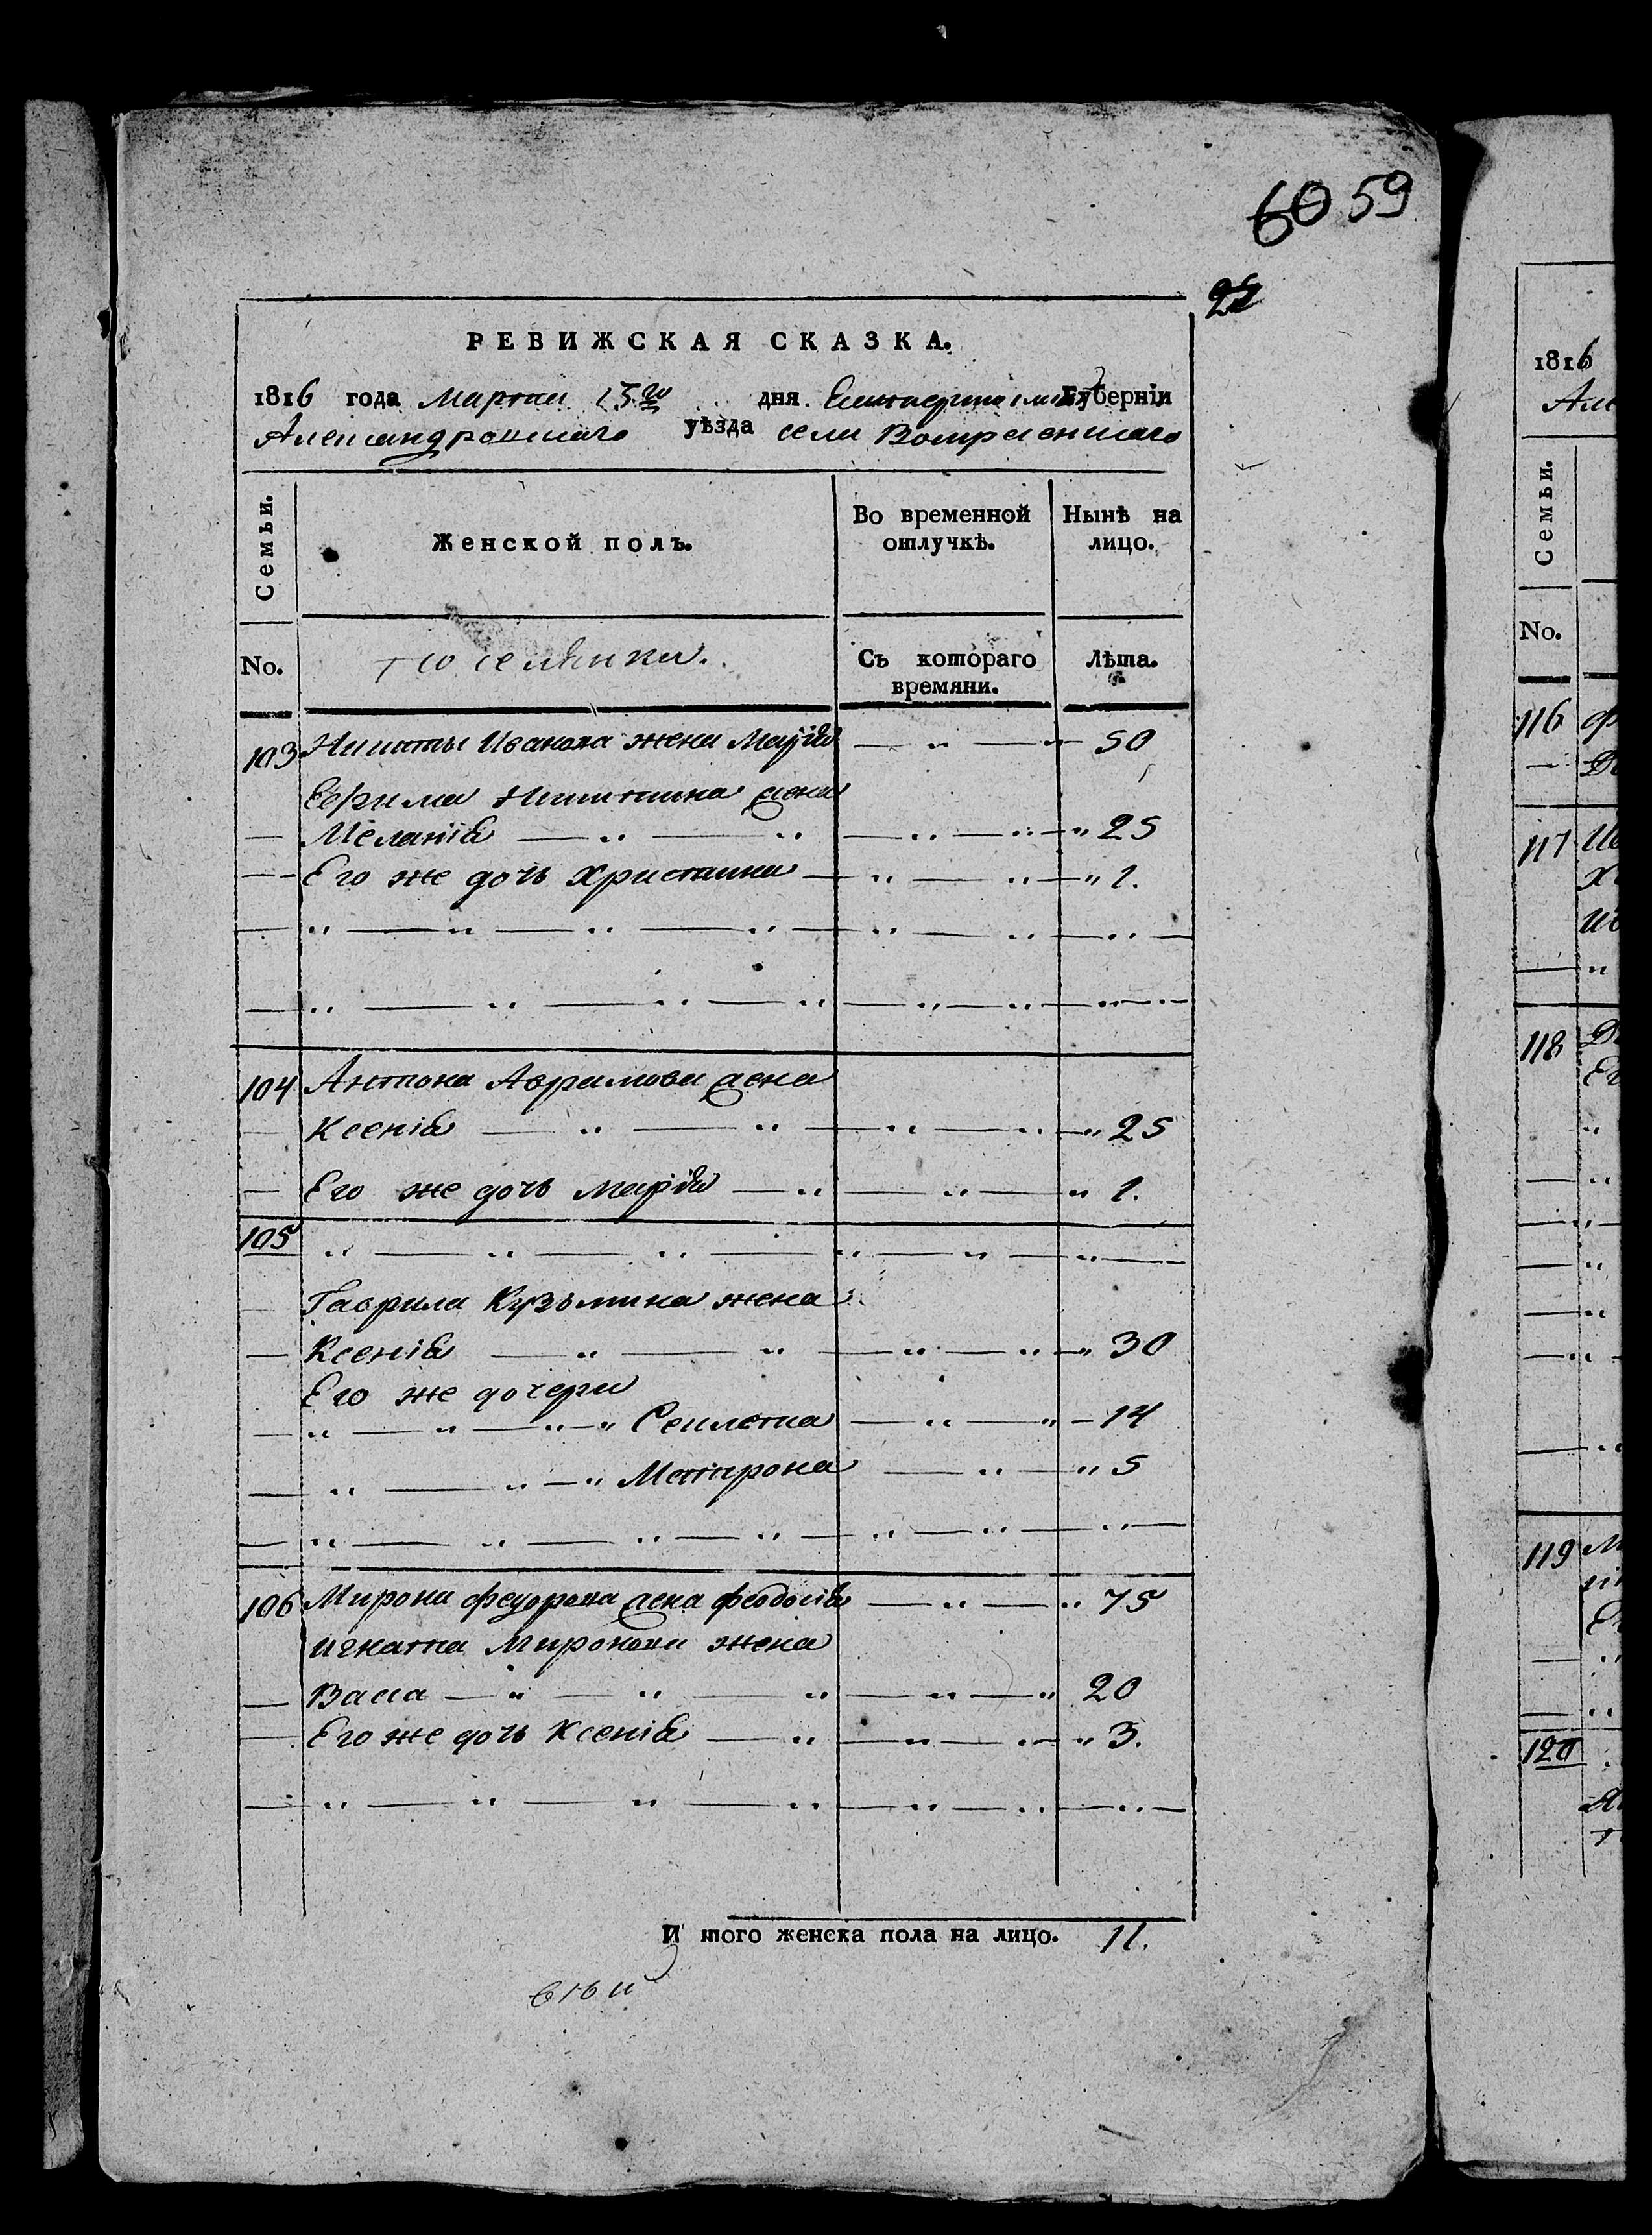 60 59
25
РЕВИЖСКАЯ СКАЗКА.
1816 года Марта 15го дня Екатеринославской Губерніи
Александровскаго уѣзда села Вознесенскаго
Семьи.
Женской полъ.
Во временной отлучкѣ.
Нынѣ на лицо.
No.
поселянки.
Съ котораго времяни.
Лѣта.
103 Никиты Иванова жена Марія — " — " — 50
Ефрима Никитина жена
— Меланія — " — " — " — " — " 25
— Его же дочь Христина — " — " — " 1.
— " — " — " — " — " — " — " —
— " — " — " — " — " — " — " — "
104 Антона Аврамова жена
— Ксенія — " — " — " — " — " 25
— Его же дочь Марія — " — " — " 1.
105 " — " — " — " — " — " —
Гаврила Кузьмина жена
— Ксенія — " — " — " — " — " 30
Его же дочери
— " — " — " — " — " — " — 14
— " — " — " Матрона — " — " 5
— " — " — " — " — " — " — " —
106 Мирона Федорова жена Феодосія — " — " 75
Игната Миронова жена
— Васса — " — " — " — " — " 20
— Его же дочь Ксенія — " — " — " — " 3.
— " — " — " — " — " — " — " —
И того женска пола на лицо. 11.
1816
Але
Семьи.
No.
116
117
118
119
120